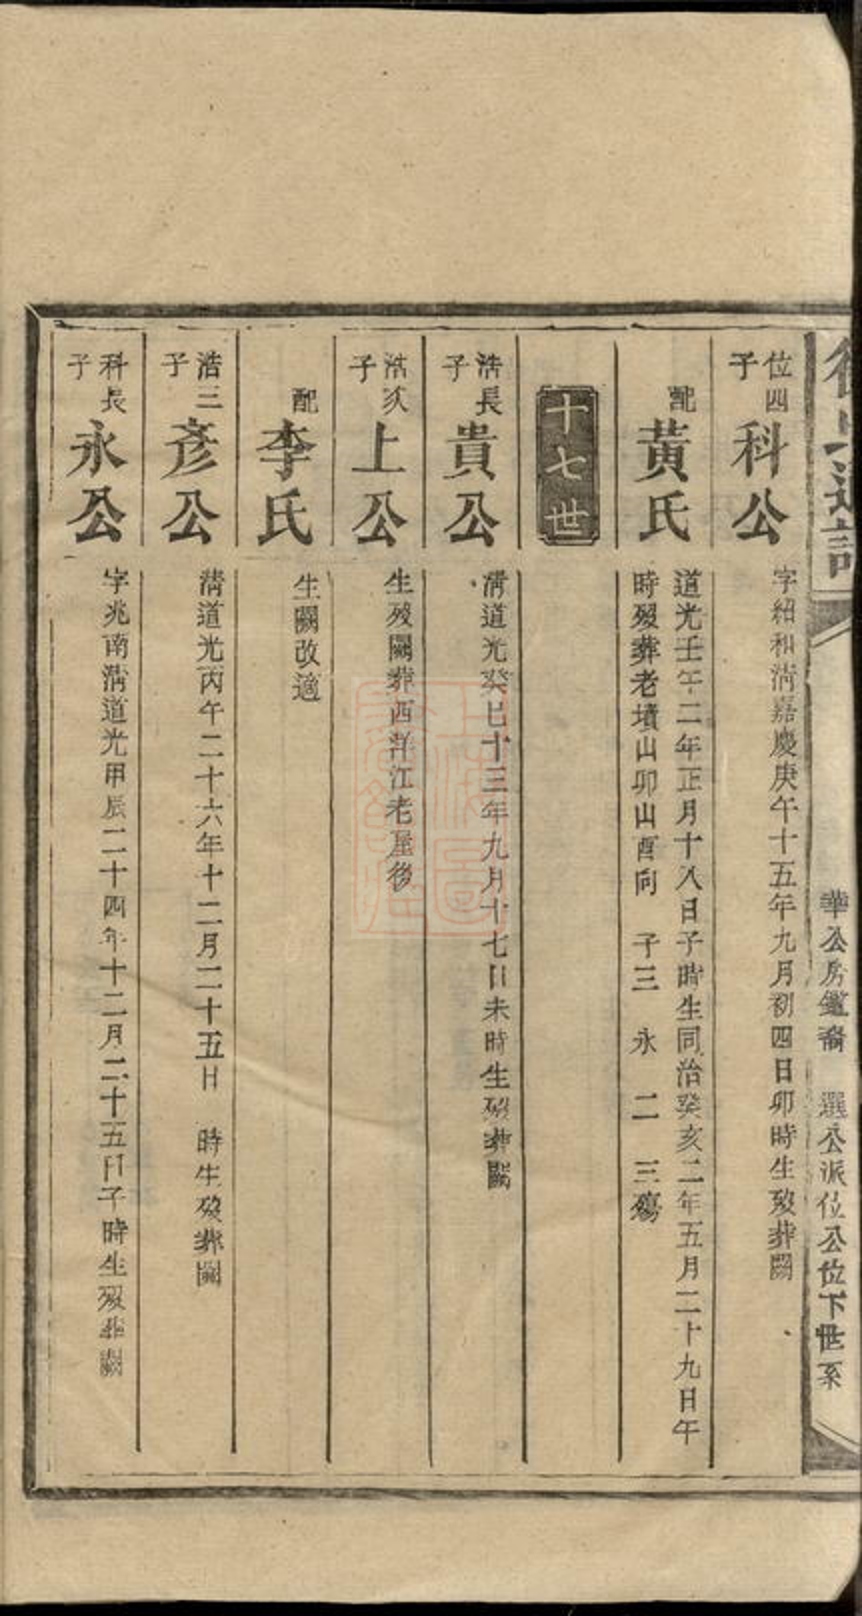 華公房鑑裔 選公派位公位下世系
位四子 科公 字紹和清嘉慶庚午十五年九月初四日卯時生歿葬闕
配 黃氏 道光壬午二年正月十八日子時生同治癸亥二年五月二十九日午
時歿葬老墳山卯山酉向 子三 永 二 三殤
十七世
浩長子 貴公 清道光癸巳十三年九月十七日未時生歿葬闕
浩次子 上公 生歿闕葬西洋江老屋後
配 李氏 生闕改適
浩三子 彥公 清道光丙午二十六年十二月二十五日 時生歿葬闕
科長子 永公 字兆南清道光甲辰二十四年十二月二十五日子時生歿葬闕